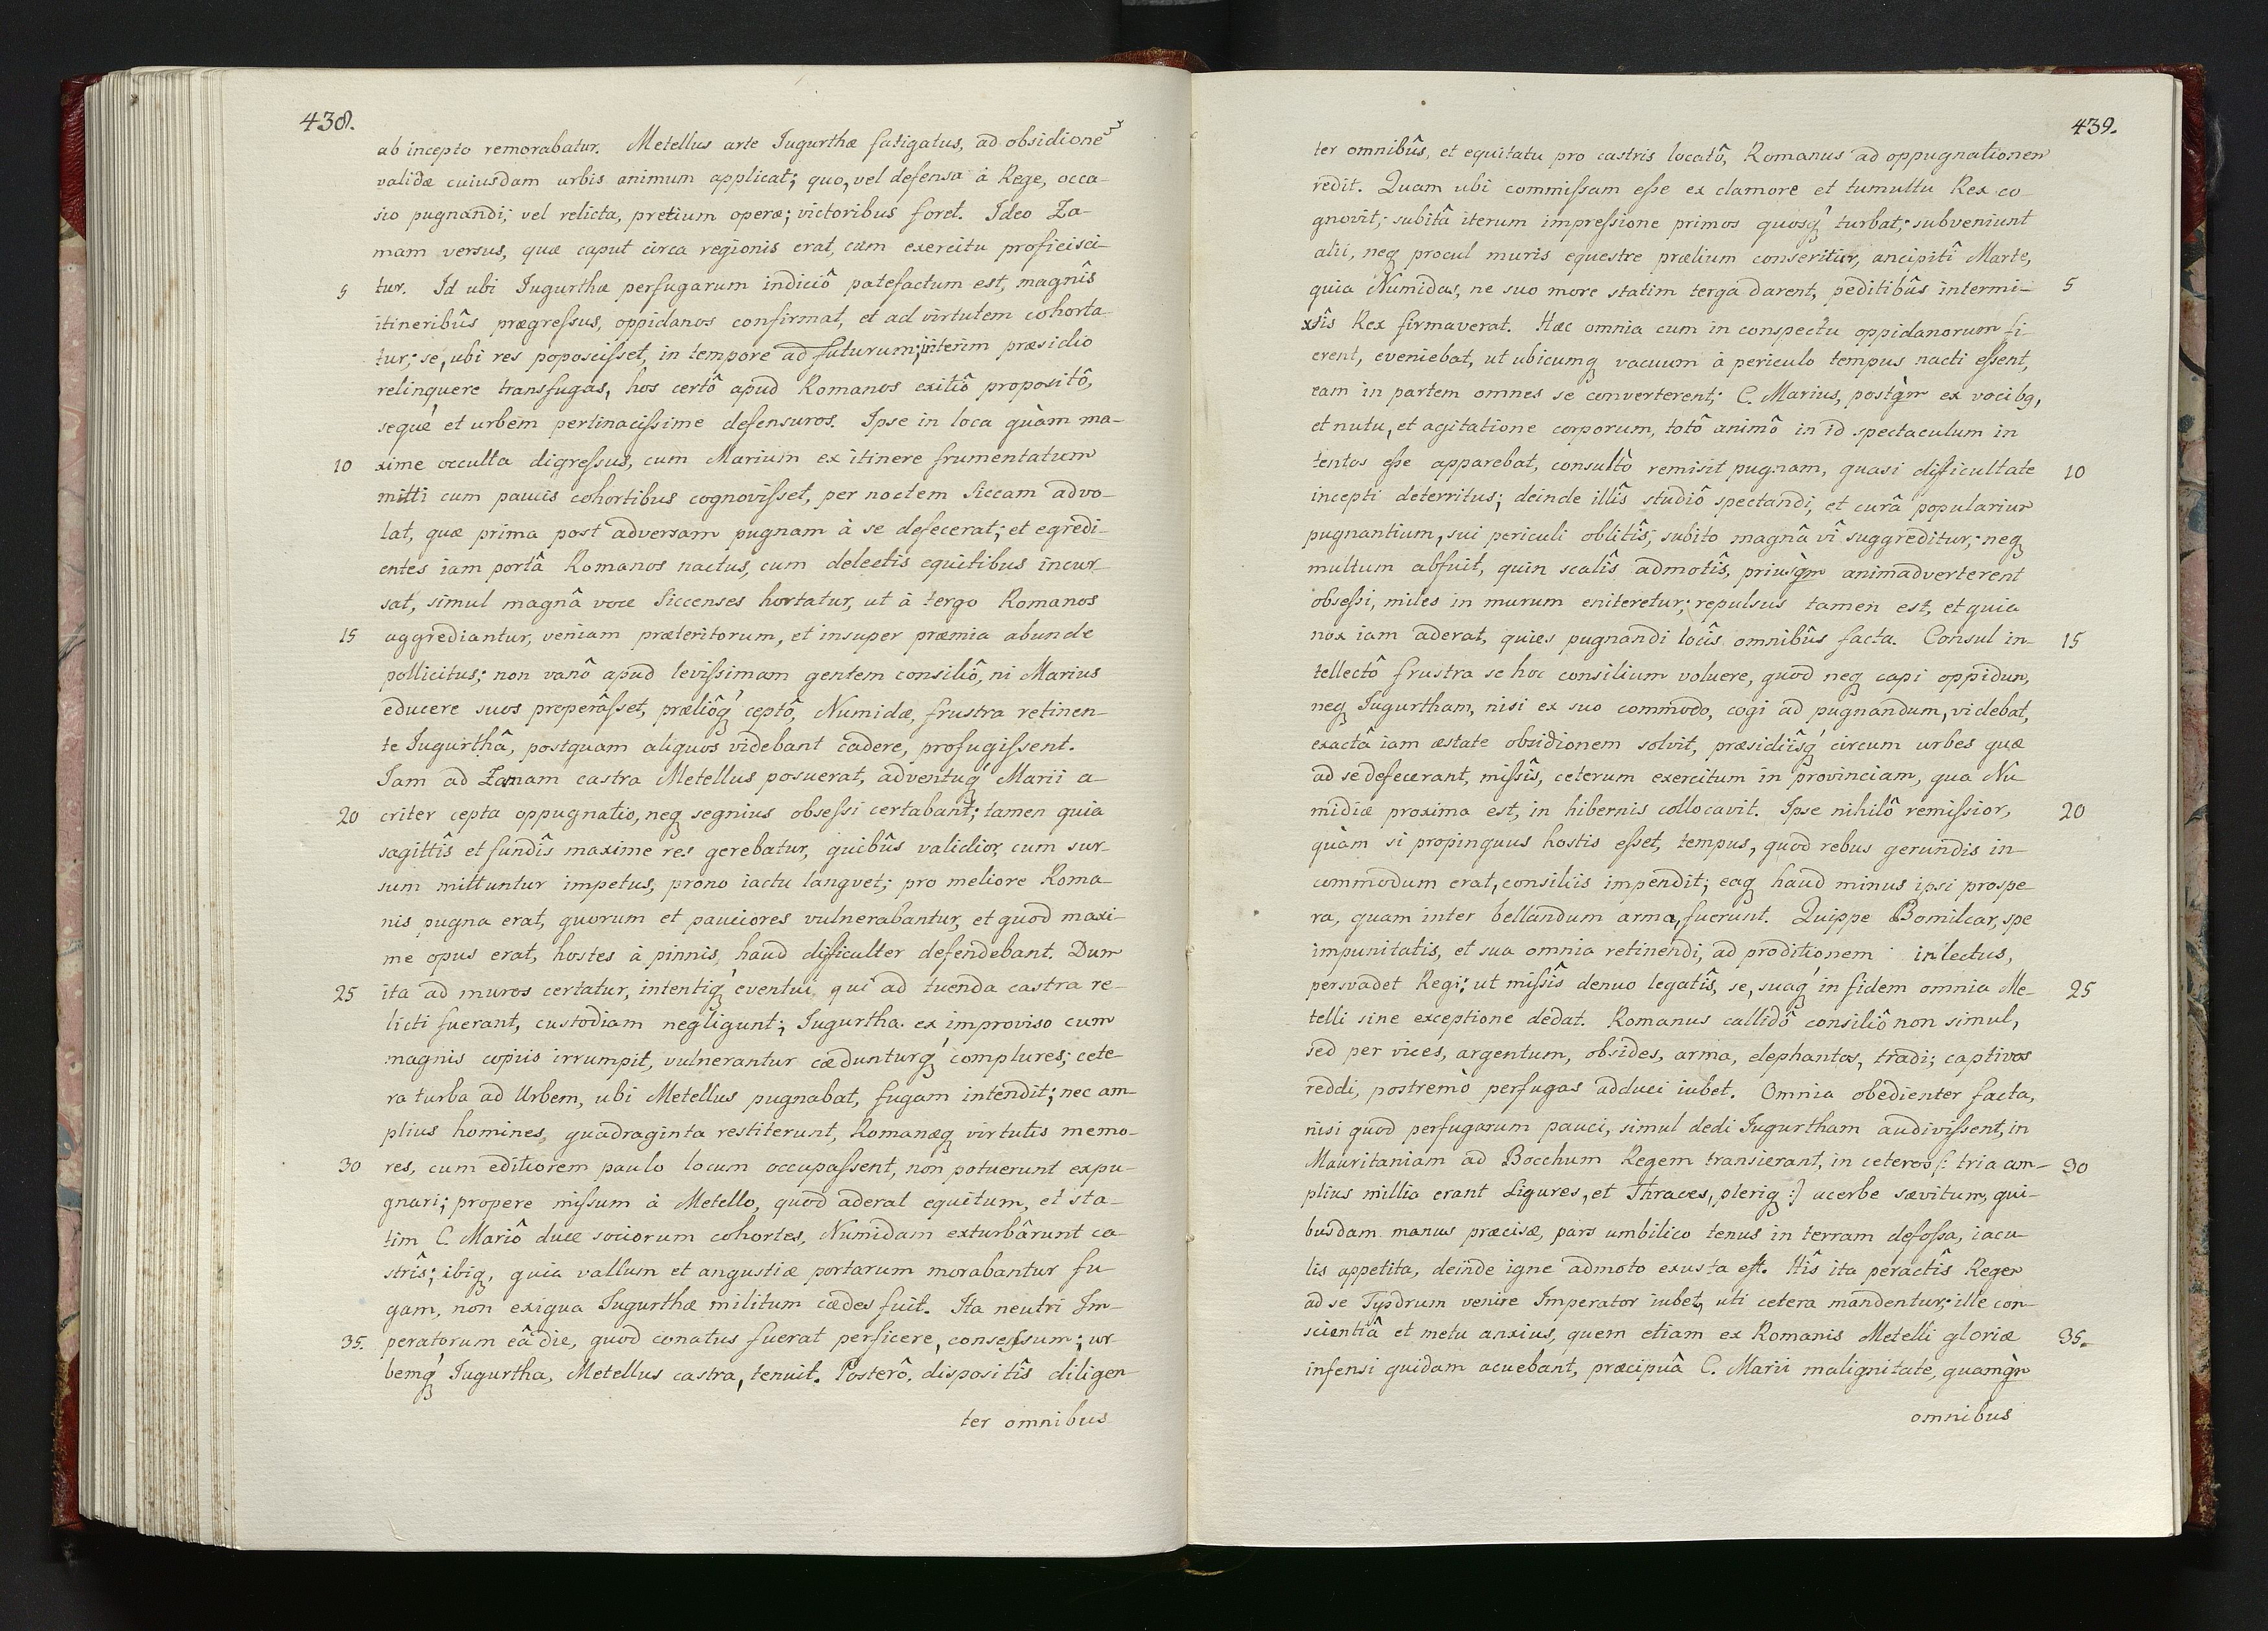 438.
ab incepto remorabatur. Metellus arte Iugurthæ fatigatus, ad obsidione
validæ cuiusdam urbis animum applicat; quo, vel defensa à Rege, occa-
sio pugnandi; vel relicta, pretium operæ; victoribus foret. Ideo Za-
mam versus, quæ caput circa regionis erat, cum exercitu proficisci-
5 tur. Id ubi Iugurthæ perfugarum indiciô patefactum est, magnîs
itineribûs prægreſsus, oppidanos confirmat, et ad virtutem cohorta-
tur; se, ubi res poposciſset, in tempore ad futurum; interim præsidio
relinquere transfugas, hos certô apud Romanos exitiô propositô,
sequè et urbem pertinaciſsime defensuros. Ipse in loca quàm ma-
10 xime occulta digreſsus, cum Marium ex itinere frumentatum
mitti cum paucis cohortibus cognoviſset, per noctem Siccam advo-
lat, quæ prima post adversam pugnam à se defecerat; et egredi-
entes iam portâ Romanos nactus, cum delectis equitibus incur-
sat, simul magnâ voce Siccenses hortatur, ut à tergo Romanos
15 aggrediantur, veniam præteritorum, et insuper præmia abunde
pollicitus; non vanô apud leviſsimam gentem consiliô, ni Marius
educere suos preperâſset, præliôq́ʒ ceptô, Numidæ, frustra retinen-
te Iugurthâ, postquam aliquos videbant cadere, profugiſsent.
Iam ad Zamam castra Metellus posuerat, adventuq́ʒ Marii a-
20 criter cepta oppugnatio, neqʒ segnius obseſsi certabant; tamen quia
sagittîs et fundîs maxime res gerebatur, quibûs validior, cum sur-
sum mittuntur impetus, prono iactu langvet; pro meliore Roma-
nis pugna erat, quorum et pauciores vulnerabantur, et quod maxi-
me opus erat, hostes à pinnis, haud difficulter defendebant. Dum
25 ita ad muros certatur, intentiq́ʒ eventui qui ad tuenda castra re-
licti fuerant, custodiam negligunt; Iugurtha ex improviso cum
magnis copiis irrumpit, vulnerantur cædunturq́ʒ complures; cete-
ra turba ad Urbem, ubi Metellus pugnabat, fugam intendit; nec am-
plius homines, quadraginta restiterunt, Romanæqʒ virtutis memo-
30 res, cum editiorem paulo locum occupaſsent, non potuerunt expu-
gnari; propere miſsum à Metello, quod aderat equitum, et sta-
tim C. Mariô duce sociorum cohortes, Numidam exturbârunt ca-
strîs; ibiqʒ, quia vallum et angustiæ portarum morabantur fu-
gam, non exigua Iugurthæ militum cædes fuit. Ita neutri Im-
35. peratorum eâ die, quod conatus fuerat perficere, conseſsum; ur
bemq́ʒ Iugurtha, Metellus castra, tenuit. Posterô, dispositîs diligen-
ter omnibus
439.
ter omnibûs, et equitatu pro castris locatô, Romanus ad oppugnationem
redit. Quam ubi commiſsam eſse ex clamore et tumultu Rex co-
gnovit; subitâ iterum impreſsione primos quosq́ʒ turbat; subveniunt
alii, neqʒ procul muris equestre prælium conseritur, ancipitî Marte,
quia Numidas, ne suo more statim terga darent, peditibûs intermi- 5
xtîs Rex firmaverat. Hæc omnia cum in conspectu oppidanorum fi-
erent, eveniebat, ut ubicumqʒ vacuum à periculo tempus nacti eſsent,
eam in partem omnes se converterent; C. Marius, postq̀m ex vocibꝫ,
et nutu, et agitatione corporum, totô animô in id spectaculum in
tentos eſse apparebat, consultò remisit pugnam, quasi difficultate 10
incepti deterritus; deinde illîs studiô spectandi, et curâ popularium
pugnantium, sui periculi oblitîs, subito magnâ vî suggreditur; neqʒ
multum abfuit, quin scalîs admotîs, priusq̀m animadverterent
obseſsi, miles in murum eniteretur; repulsus tamen est, et quia
nox iam aderat, quies pugnandi locîs omnibûs facta. Consul in- 15
tellectô frustra se hoc consilium voluere, quod neqʒ capi oppidum,
neqʒ Iugurtham, nisi ex suo commodo, cogi ad pugnandum, videbat,
exactâ iam æstate obsidionem solvit, præsidiîsq́ʒ circum urbes quæ
ad se defecerant, miſsîs, ceterum exercitum in provinciam, qua Nu
midiæ proxima est, in hibernis collocavit. Ipse nihilô remiſsior, 20
quàm si propinquus hostis eſset, tempus, quod rebus gerundis in-
commodum erat, consiliis impendit; eaqʒ haud minus ipsi prospe-
ra, quam inter bellandum arma, fuerunt. Quippe Bomilcar, spe
impunitatis, et sua omnia retinendi, ad proditionem inlectus,
persvadet Regi: ut miſsîs denuo legatîs, se, suaq́ʒ in fidem omnia Me- 25
telli sine exceptione dedat. Romanus callidô consiliô non simul,
sed per vices, argentum, obsides, arma, elephantos, tradi; captivos
reddi, postremò perfugas adduci iubet. Omnia obedienter facta,
nisi quod perfugarum pauci, simul dedi Iugurtham audiviſsent, in
Mauritaniam ad Bocchum Regem transierant, in ceteros /: tria am- 30
plius millia erant Ligures, et Thraces, pleriqʒ :/ acerbe sævitum, qui-
busdam manus præcisæ, pars umbilico tenus in terram defoſsa, iacu
lis appetita, deinde igne admoto exusta est. Hîs ita peractîs Regem
ad se Tysdrum venire Imperator iubet, uti cetera mandentur; ille con-
scientiâ et metu anxius, quem etiam ex Romanis Metelli gloriæ 35.
infensi quidam acuebant, præcipuâ C. Marii malignitate, quamq̀m
omnibus